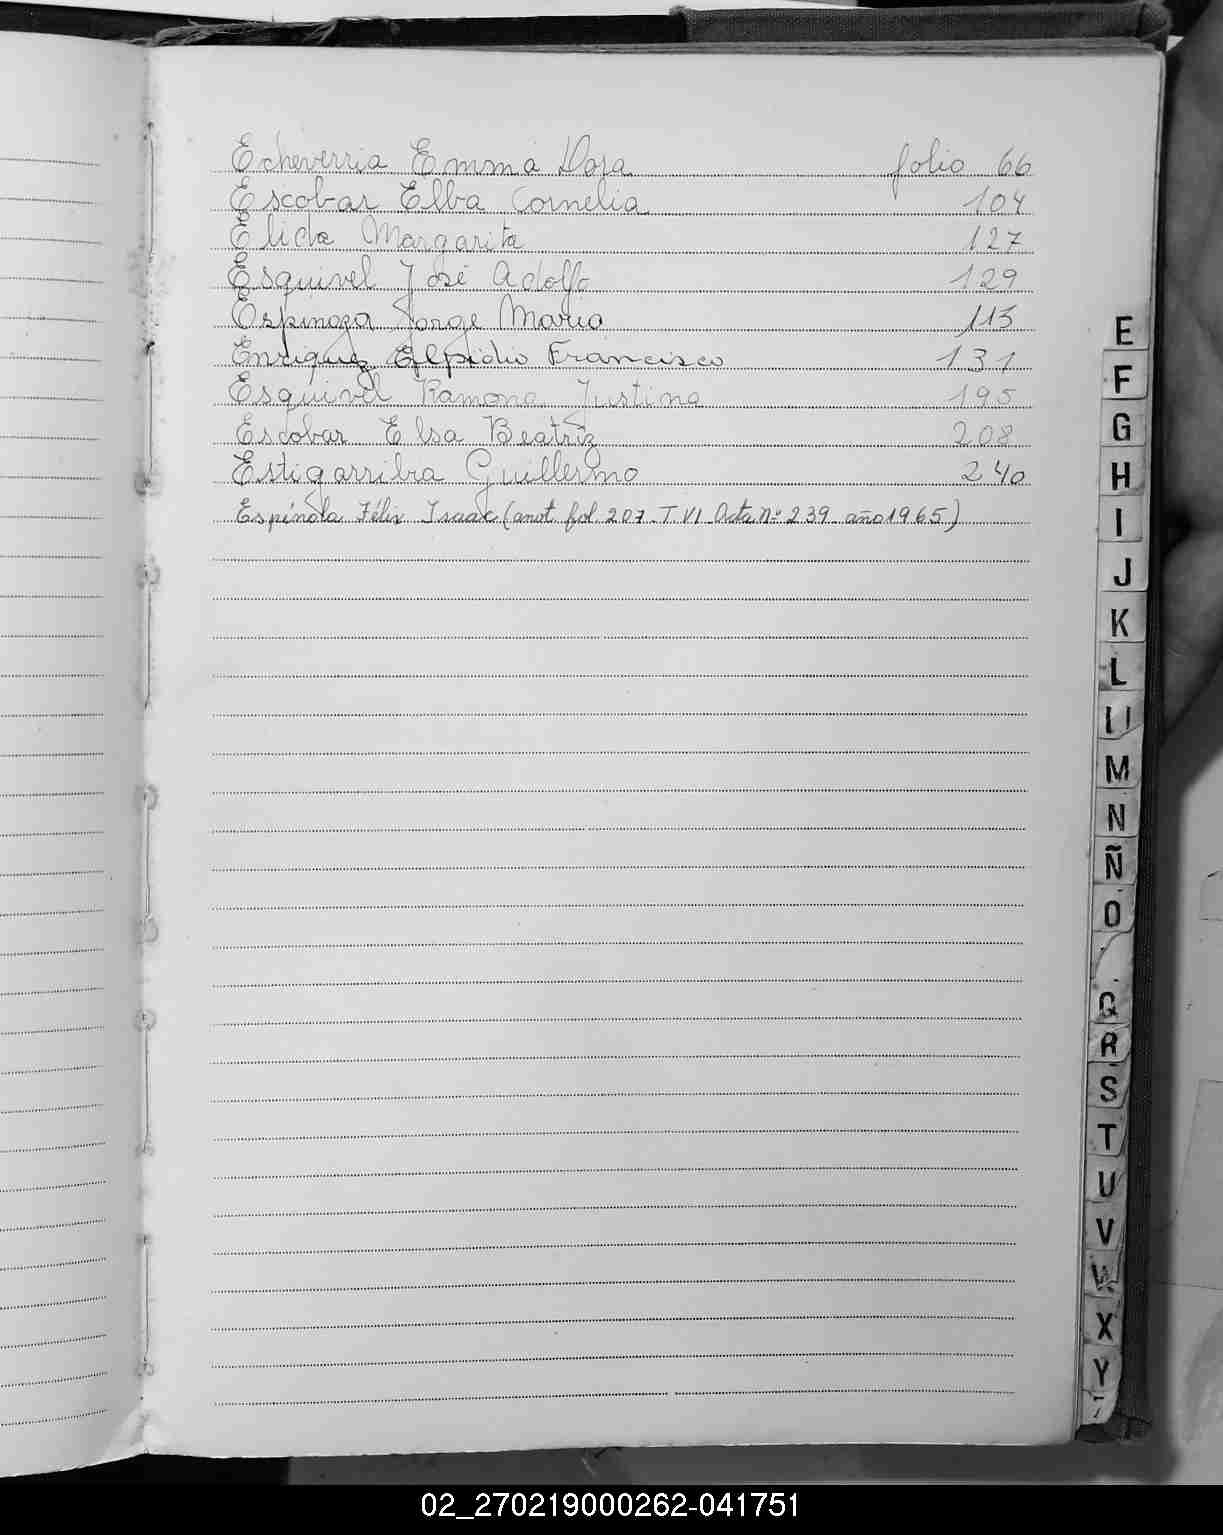 Echeverria Emma Dora folio 66
Escobar Elba Cornelia 104
Elida Margarita 127
Esquivel José Adolfo 129
Espinoza Jorge Mario 115
Enriquez Elpidio Francisco 131
Esquivel Ramona Justina 195
Escobar Elsa Beatriz 208
Estigarribia Guillermo 240
Espínola Félix Isaac (anot. fol. 207. T VI. Acta Nº 239. año 1965)
E
F
G
H
I
J
K
L
M
N
Ñ
O
Q
R
S
T
U
V
W
X
Y
02_270219000262-041751